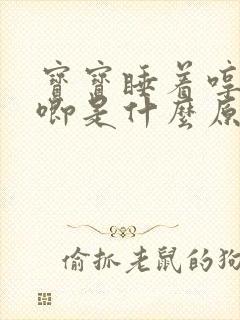 寶寶睡着哼
唧是什麼原
偷抓老鼠的狗